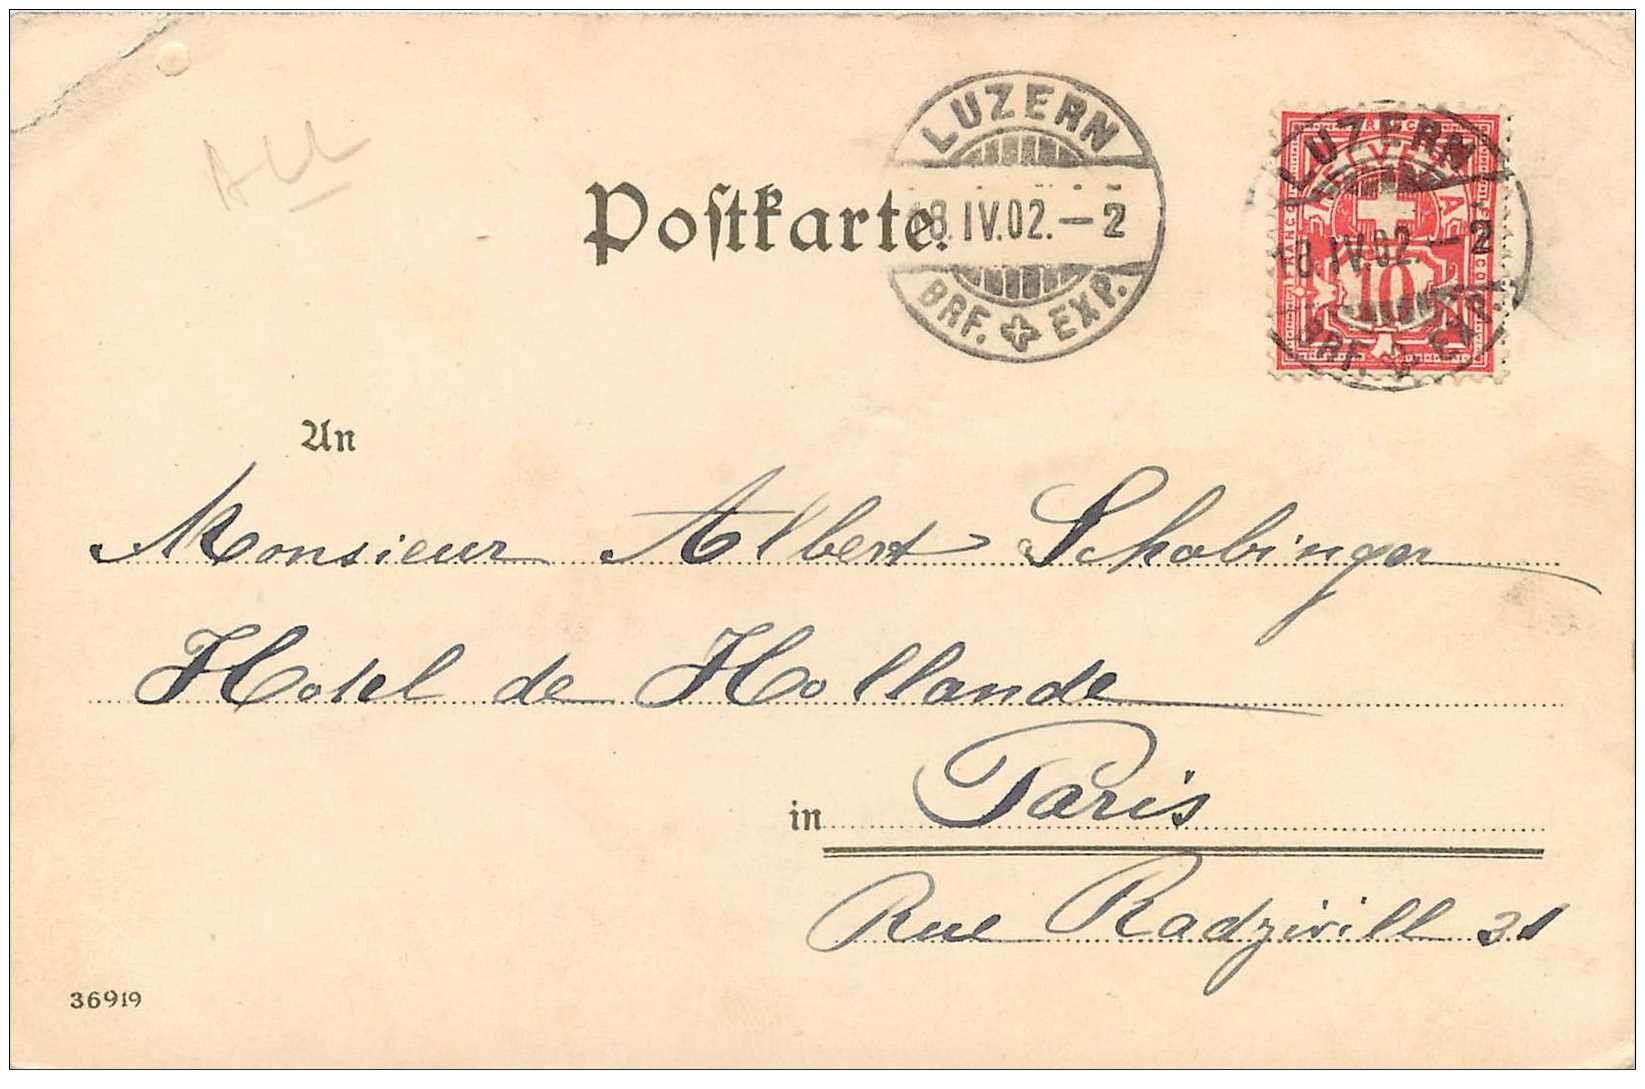 All
LUZERN
18.IV.02.–2
BRF. EXP.
Postkarte.
FRANCO
HELVETIA
FRANCO
FRANCO
10
LUZERN
18.IV.02.–2
BRF. EXP.
An
Monsieur Albert Schobinger
Hotel de Hollande
in Paris
Rue Radzivill 31
36919